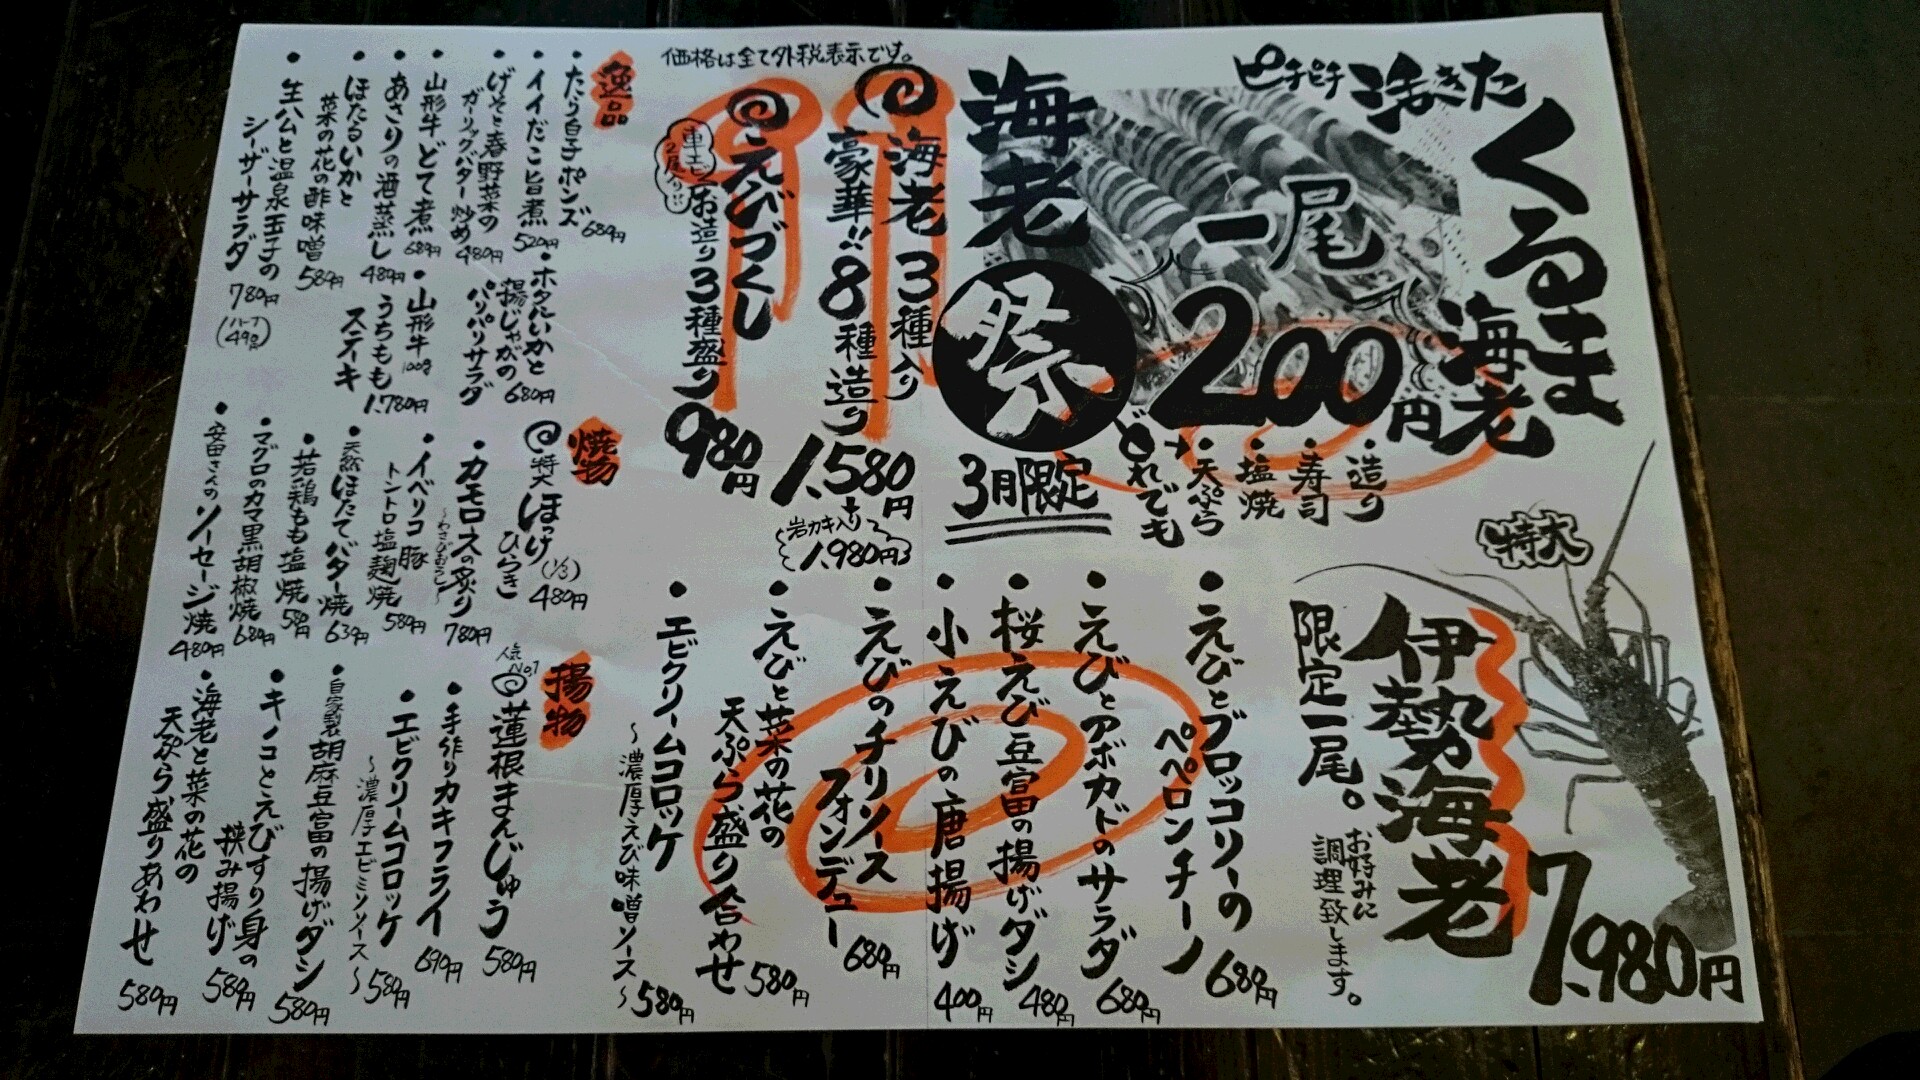 ピチピチ活きた
くるま
海老
一尾
200円
・造り
・寿司
・塩焼
・天ぷら
どれでも
海老
祭
3月限定
価格は全て外税表示です。
海老3種入り
豪華!!8種造り
1,580円
岩カキ入り
1,980円
えびづくし
車エビ
2尾入り!!
お造り3種盛り
980円
特大
伊勢海老
7,980円
限定一尾。
お好みに
調理致します。
・えびとブロッコリーの
ペペロンチーノ
680円
・えびとアボカドのサラダ
680円
・桜えび豆富の揚げダシ
480円
・小えびの唐揚げ
400円
・えびのチリソース
フォンデュー
680円
・えびと菜の花の
天ぷら盛り合わせ
580円
・エビクリームコロッケ
〜濃厚えび味噌ソース〜
580円
逸品
・たら白子ポンズ
680円
・イイだこ旨煮
520円
・げそと春野菜の
ガーリックバター炒め
480円
・山形牛どて煮
680円
・あさりの酒蒸し
480円
・ほたるいかと
菜の花の酢味噌
580円
・生ハムと温泉玉子の
シーザーサラダ
780円
(ハーフ490円)
・ホタルいかと
揚げじゃがの
パリパリサラダ
680円
・山形牛100g
うちもも
ステーキ
1,780円
焼物
特大ほっけ
ひらき
(1/3)
480円
・カモロスの炙り
〜わさびおろし〜
780円
・イベリコ豚
トントロ塩麹焼
580円
・天然ほたてバター焼
630円
・若鶏もも塩焼
580円
・マグロのカマ黒胡椒焼
680円
・安田さんのソーセージ焼
480円
揚物
人気No.1
蓮根まんじゅう
580円
・手作りカキフライ
690円
・エビクリームコロッケ
〜濃厚エビミソソース〜
580円
・自家製胡麻豆富の揚げダシ
580円
・キノコとえびすり身の
挟み揚げ
580円
・海老と菜の花の
天ぷら盛りあわせ
580円